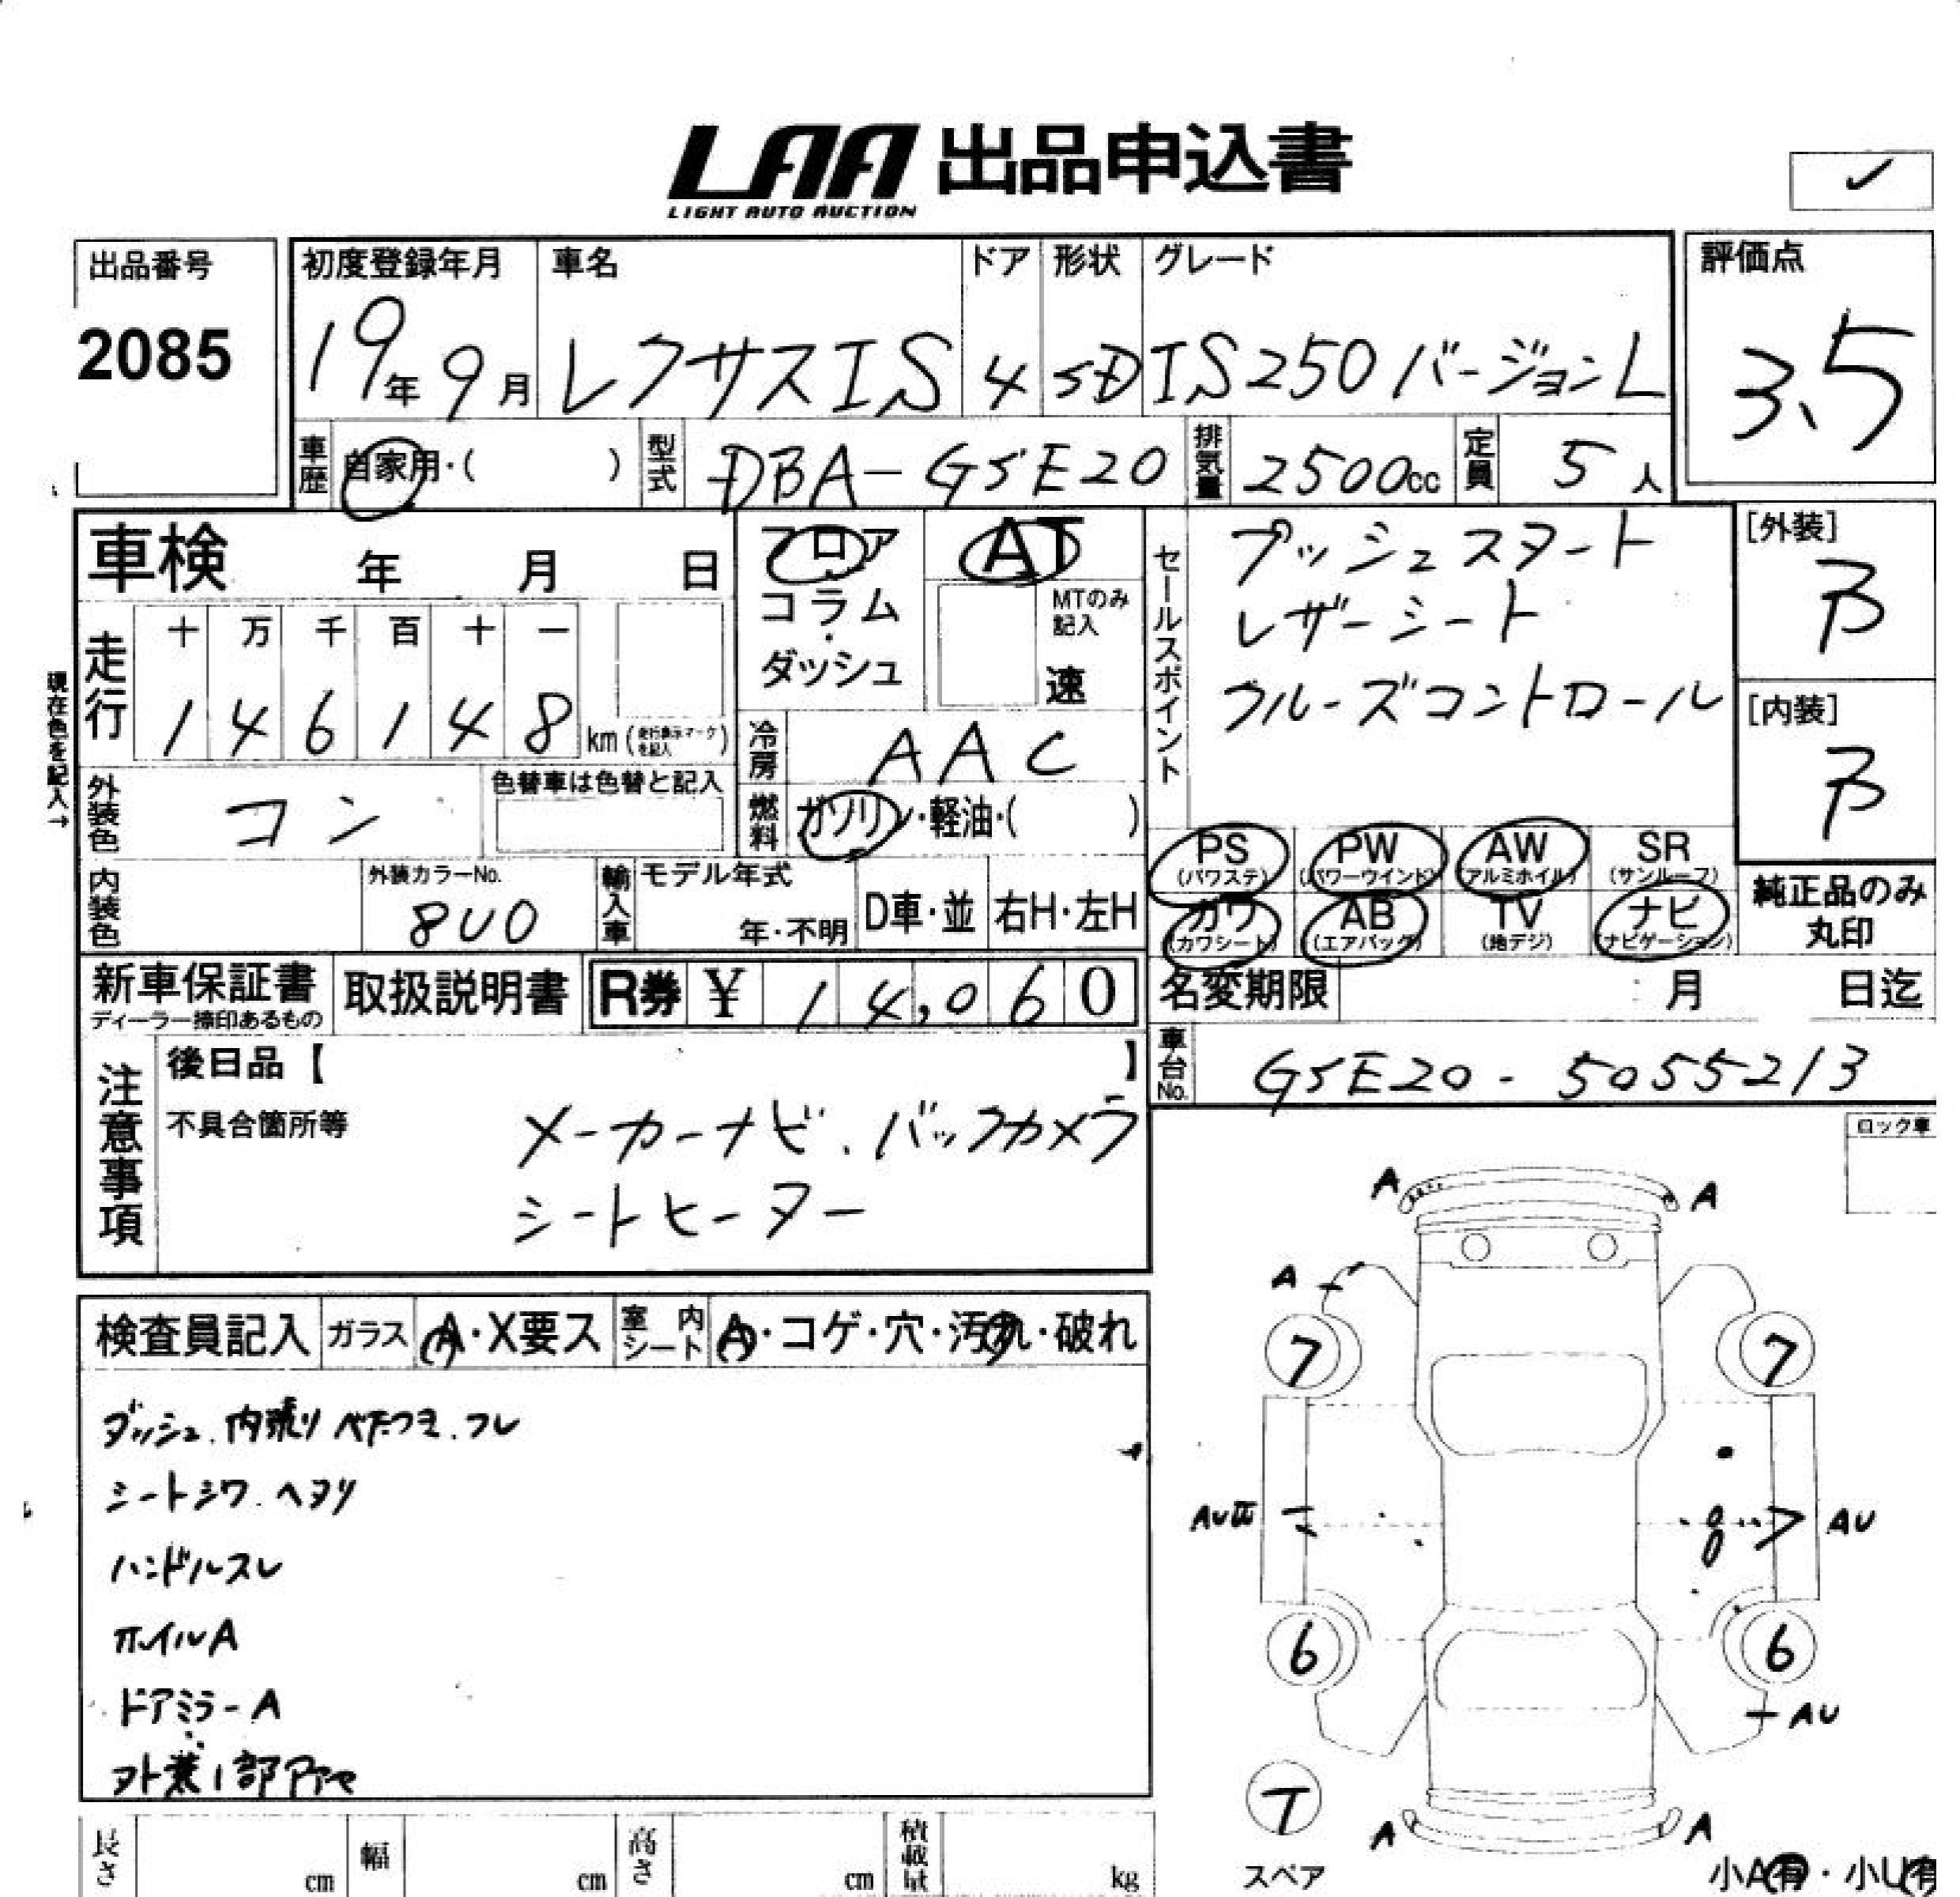 LAA 出品申込書
LIGHT AUTO AUCTION
✓
出品番号
2085
初度登録年月
19年9月
車名
レクサスIS
ドア
4
形状
SD
グレード
IS250 バージョンL
評価点
3.5
車歴 自家用・( )
型式 DBA-GSE20
排気量 2500cc
定員 5人
車検 年 月 日
フロア
コラム
・
ダッシュ
AT
MTのみ
記入
速
セールスポイント
プッシュスタート
レザーシート
クルーズコントロール
[外装]
B
[内装]
B
現在色を記入→
走行
十 万 千 百 十 一
1 4 6 1 4 8 km (走行表示マークを記入)
冷房 AAC
外装色 コン
色替車は色替と記入
燃料 ガソリン・軽油・( )
PS (パワステ)
PW (パワーウインド)
AW (アルミホイル)
SR (サンルーフ)
カワ (カワシート)
AB (エアバッグ)
TV (地デジ)
ナビ (ナビゲーション)
純正品のみ
丸印
内装色
外装カラーNo.
8U0
輸入車
モデル年式
年・不明
D車・並
右H・左H
新車保証書
ディーラー捺印あるもの
取扱説明書
R券 ¥ 14,060
名変期限 月 日迄
車台No. GSE20-5055213
注意事項
後日品【 】
不具合箇所等
メーカーナビ.バックカメラ
シートヒーター
ロック車
検査員記入
ガラス A・X要ス
室内シート A・コゲ・穴・汚れ・破れ
ダッシュ.内張りベタつき.スレ
シートシワ.ヘタリ
ハンドルスレ
ホイルA
ドアミラーA
A A
A
7 7
AU
AU
6 6
AU
T
スペア
A A
小A有・小U有
長さ cm
幅 cm
高さ cm
積載量 kg